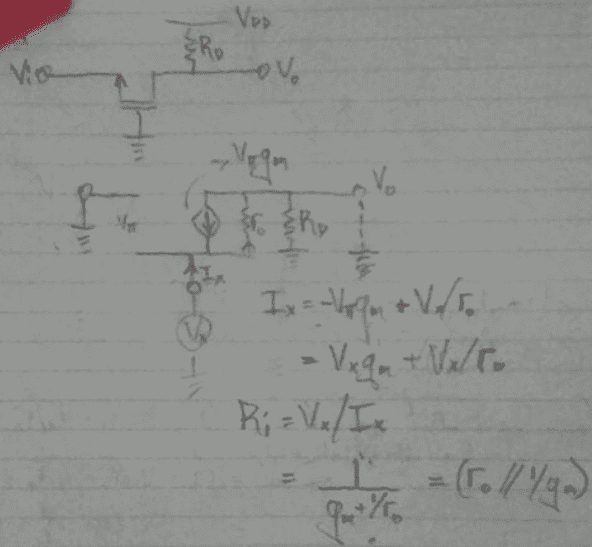 V_DD
R_D
Vi
V_o
→ V_π g_m
V_π
r_o
R_D
V_o
I_x
V_x
I_x = -V_π g_m + V_x/r_o
= V_x g_m + V_x/r_o
R_i = V_x/I_x
= 1/(g_m + 1/r_o) = (r_o // 1/g_m)